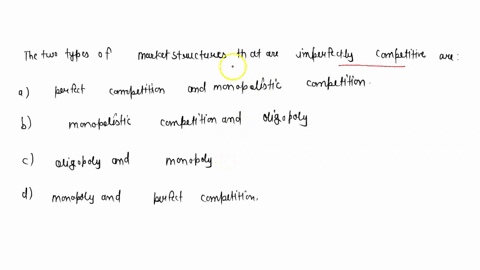 The two types of market structures that are imperfectly competitive are:
a) perfect competition and monopolistic competition.
b) monopolistic competition and oligopoly
c) oligopoly and monopoly
d) monopoly and perfect competition.